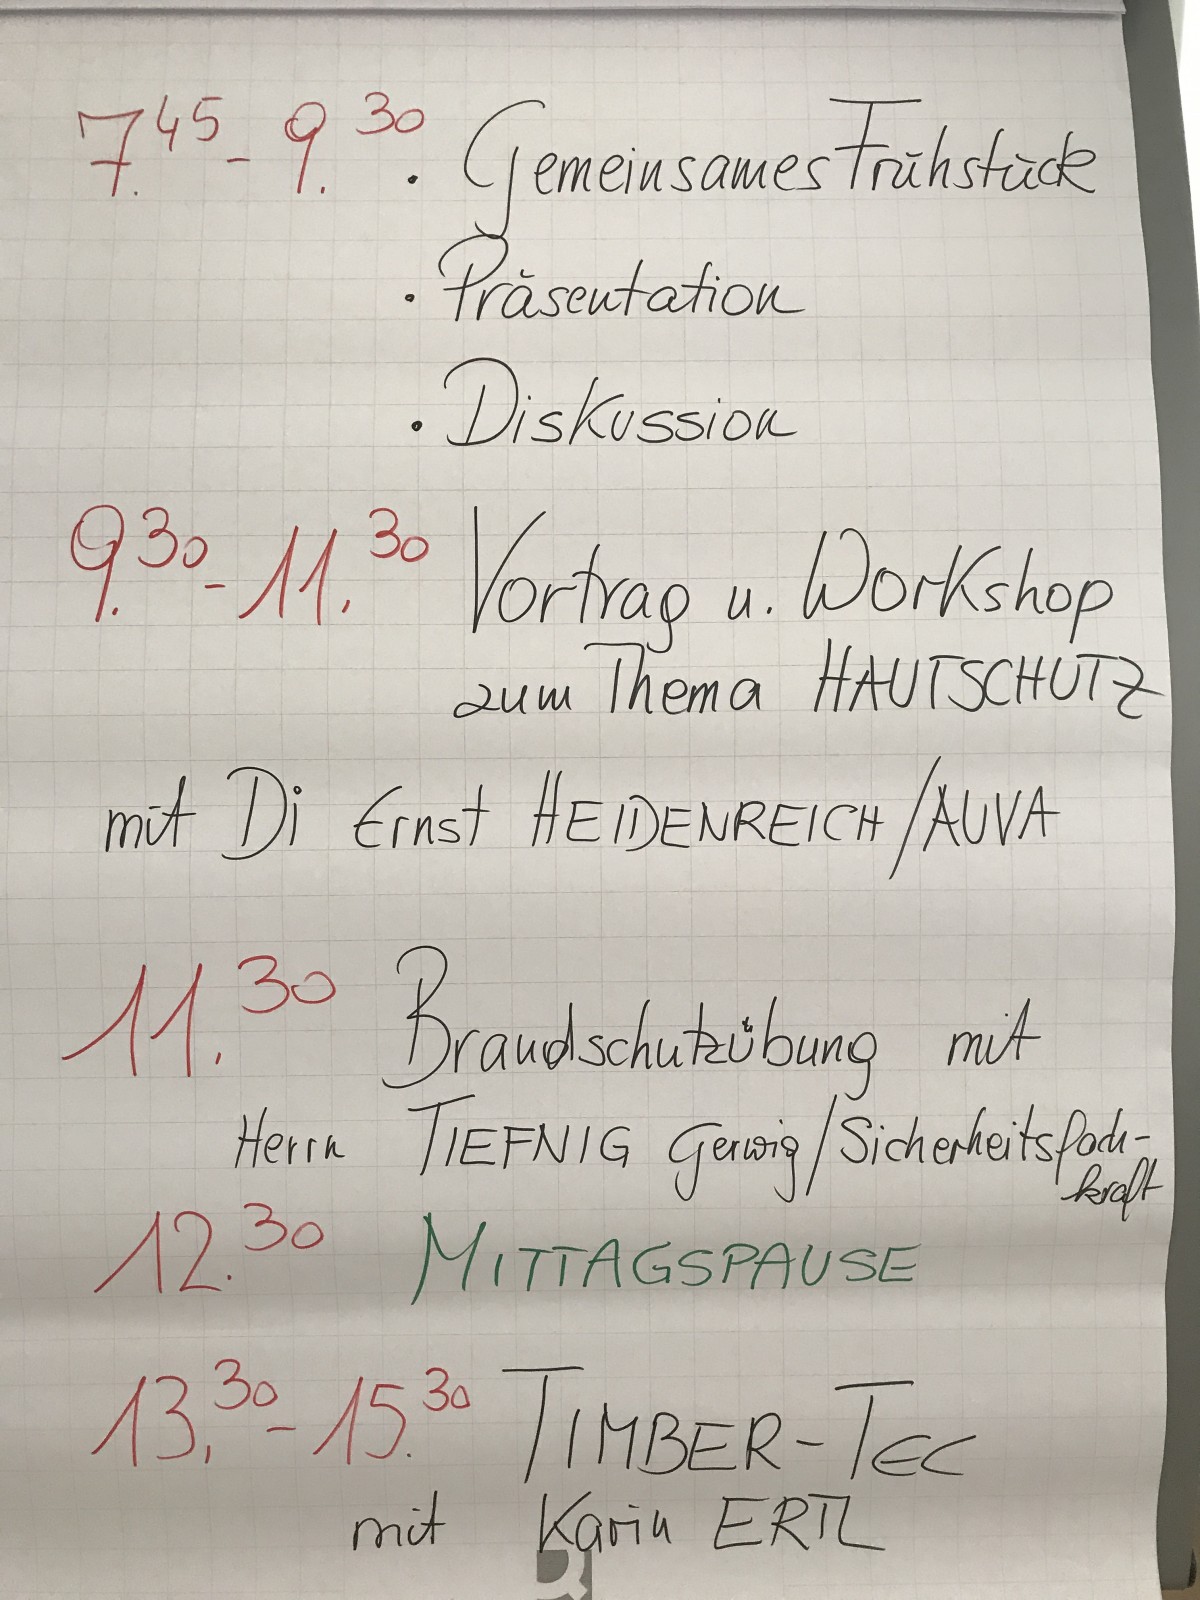 7.45 - 9.30 · Gemeinsames Frühstück
· Präsentation
· Diskussion
9.30 - 11.30 Vortrag u. Workshop
zum Thema HAUTSCHUTZ
mit Di Ernst HEIDENREICH/AUVA
11.30 Brandschutzübung mit
Herrn TIEFNIG Gerwig/Sicherheitsfach-
kraft
12.30 MITTAGSPAUSE
13.30 - 15.30 TIMBER-TEC
mit Karin ERTL